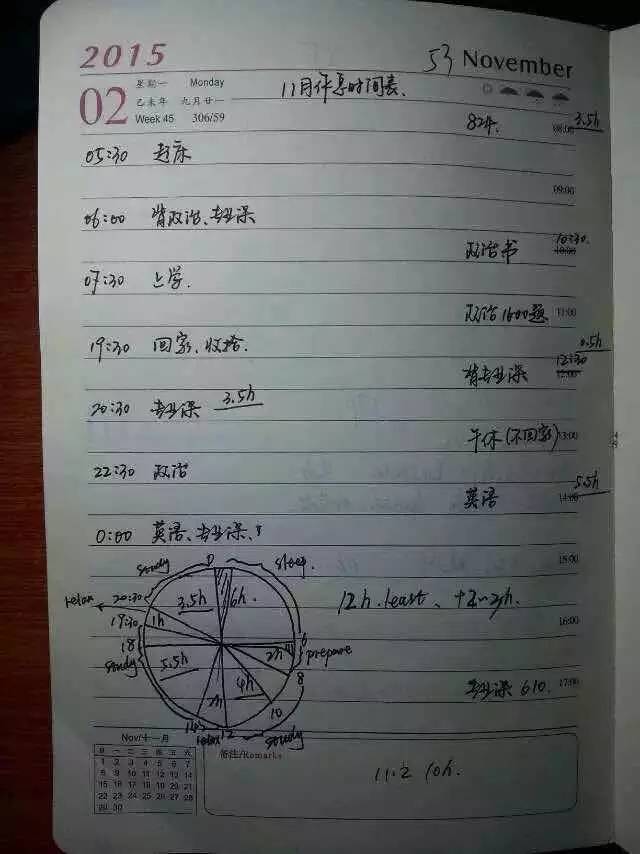 2015
53 November
02
星期一 Monday
乙未年 九月廿一
Week 45 306/59
11月作息时间表.
824.
08:00 3.5h
05:30 起床
09:00
06:00 背政治、专业课
政治书 10:30
10:00
07:30 上学.
政治1600题 11:00
19:30 回家、收拾.
0.5h
背专业课 12:30
12:00
20:30 专业课 3.5h
午休(不回家) 13:00
22:30 政治
英语 14:00 5.5h
0:00 英语、专业课、
15:00
study 0 sleep.
relax 20:30 3.5h 6h.
12h. least、+2~3h.
19:30 1h
16:00
18 6
2h prepare
study 5.5h 8
4h
专业课 610. 17:00
2h 10
14 relax 12 study
Nov/十一月
日 一 二 三 四 五 六
1 2 3 4 5 6 7
8 9 10 11 12 13 14
15 16 17 18 19 20 21
22 23 24 25 26 27 28
29 30
备注/Remarks
11.2 10h.